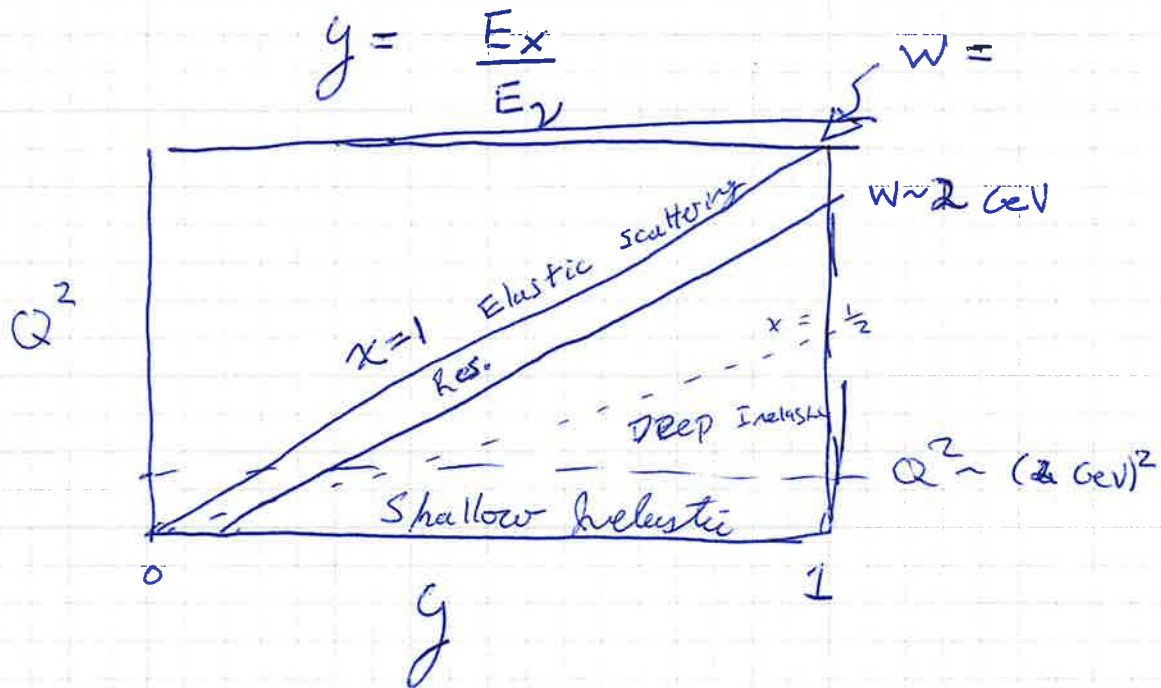 y = Ex / Eν
W =
W~2 GeV
Q²
x=1 Elastic scattering
Res.
x = 1/2
Deep Inelastic
Q² ~ ( GeV)²
Shallow Inelastic
0
y
1